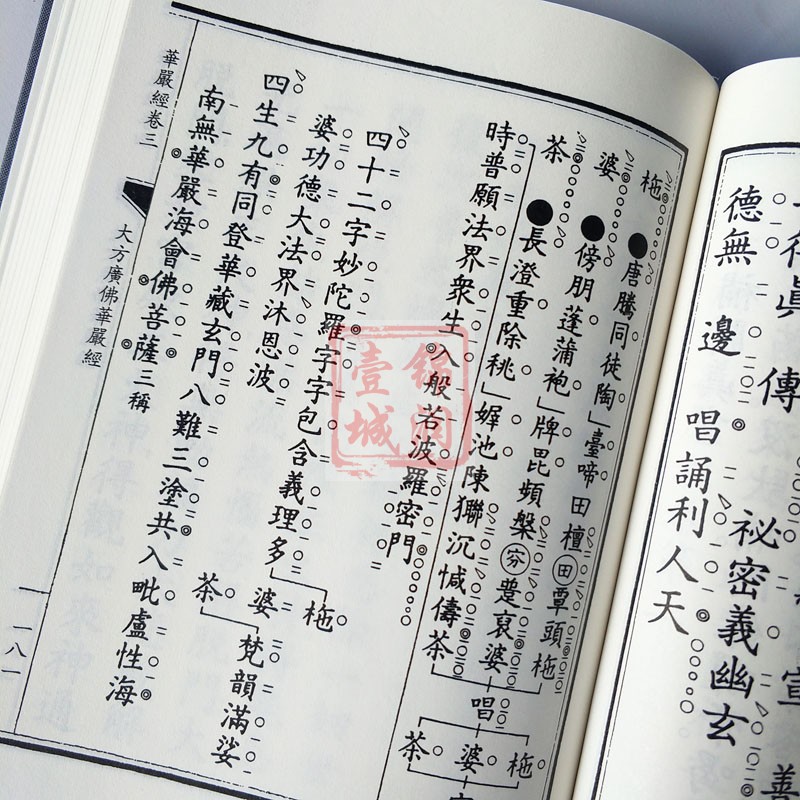 真傳
祕密義幽玄
宣
善
德無邊
唱誦利人天
柂
●唐騰同徒陶」臺啼田檀田覃頭柂
婆
●傍朋蓬蒲袍」牌毘頻槃㐱疌裒婆
茶
●長澄重除祧」池陳沉儔茶
唱
柂
婆
茶
時普願法界衆生入般若波羅密門
四十二字妙陀羅字字包含義理多
柂
婆
茶
梵韻滿娑
婆功德大法界沐恩波
四生九有同登華藏玄門八難三塗共入毗盧性海
南無華嚴海會佛菩薩三稱
華嚴經卷三
大方廣佛華嚴經
一八一
錦潤
壹城